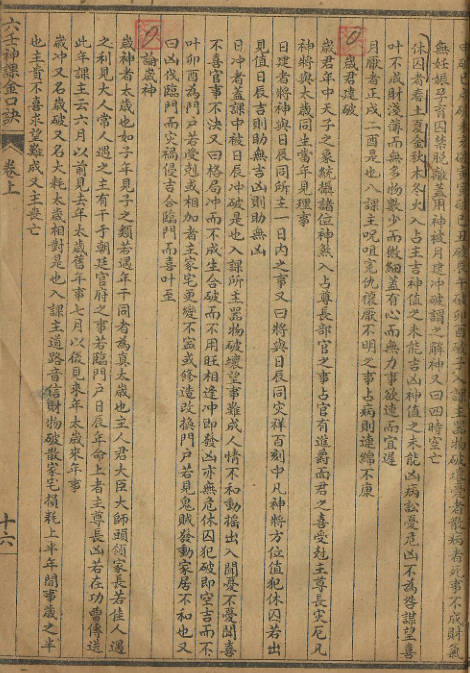 無妊娠孕育囚禁脫敵蓋用神被月建冲破謂之解神又曰四時空亡
休囚者春土夏金秋木冬火入占主吉神值之未能吉凶神值之未能凶病訟憂危凶不為咎謀望喜
叶不成財淺薄而無多物數少而微細蓋有心而無力事欲速而宜遲
月厭者正戌二酉是也入課主呪咀寃仇憎厭不明之事占病則連綿不康
歲君建破
歲君年中天子之象統攝諸位神煞入占尊長部官之事占官有進爵面君之喜受尅主尊長灾厄凡
神將與太歲同生當年見理事
日建者將神與日辰同所主一日內之事又曰將與日辰同灾祥百刻中凡神將方位值犯休囚若出
見值日辰吉則助無吉凶則助無凶
日冲者蓋課中被日辰冲破是也入課所主噐物破壞望事難成人情不和動搖出入聞憂不憂聞喜
不喜官事不決又曰格局冲而不成生合破而不用旺相逢冲即發凶亦無危休囚犯破即空吉而不
叶卯酉為門戶若受剋或相加者主家宅更變不寍或修造改換門戶若見鬼賊發動家居不和也又
曰凶伐臨門而灾禍侵吉合臨門而喜叶至
論歲神
歲神者太歲也如子年見子之類若遇年干同者為真太歲也主人君大臣大師頭領家長若佳人遇
之利見大人常人遇之主有干于朝廷官府之事若臨門戶日辰年命上者主尊長凶若在功曹傳送
此年課主云六月以前見去年太歲舊年事七月以後見來年太歲來年事
歲冲又名歲破又名大耗太歲相對是也入課主道路音信財物破散家宅損耗上半年間事歲之半
也主育不喜求望難成又主喪亡
六壬神課金口訣
卷上
十六